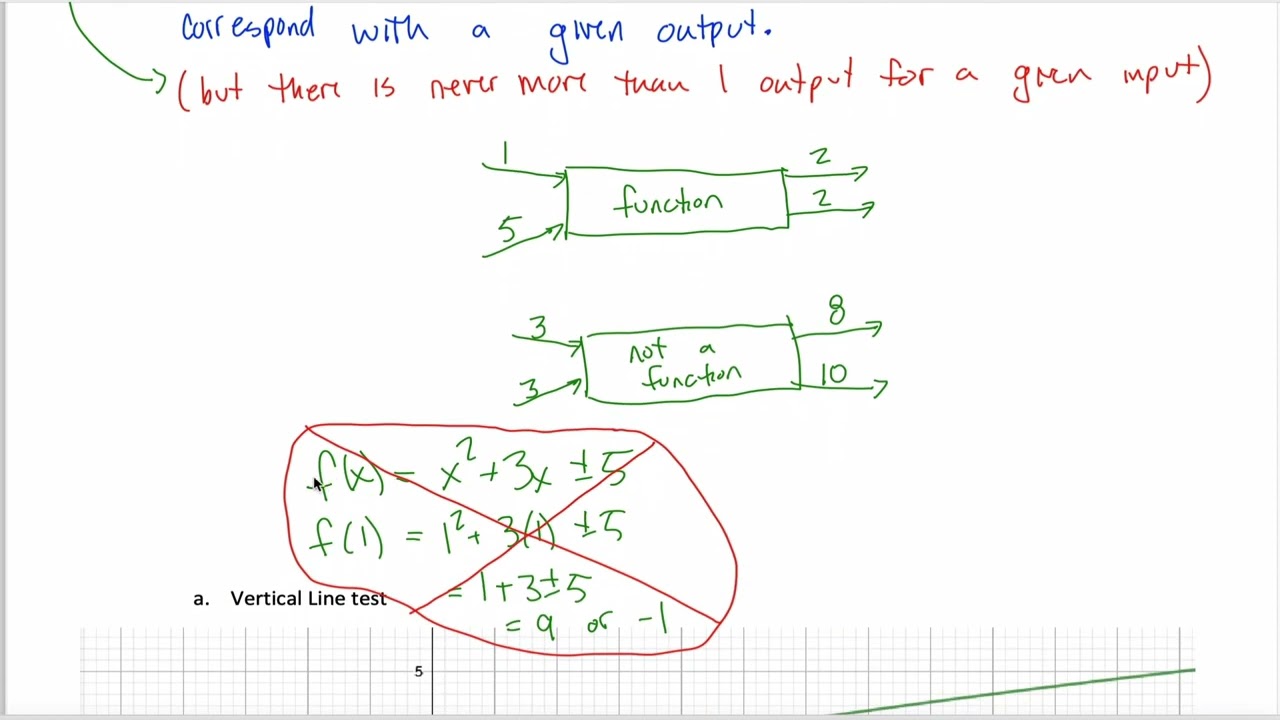 correspond with a given output.
(but there is never more than 1 output for a given input)
1
2
function
2
5
8
3
not a
function
10
3
f(x) = x²+3x ±5
f(1) = 1²+ 3(1) ±5
= 1+3±5
a. Vertical Line test
= 9 or -1
5